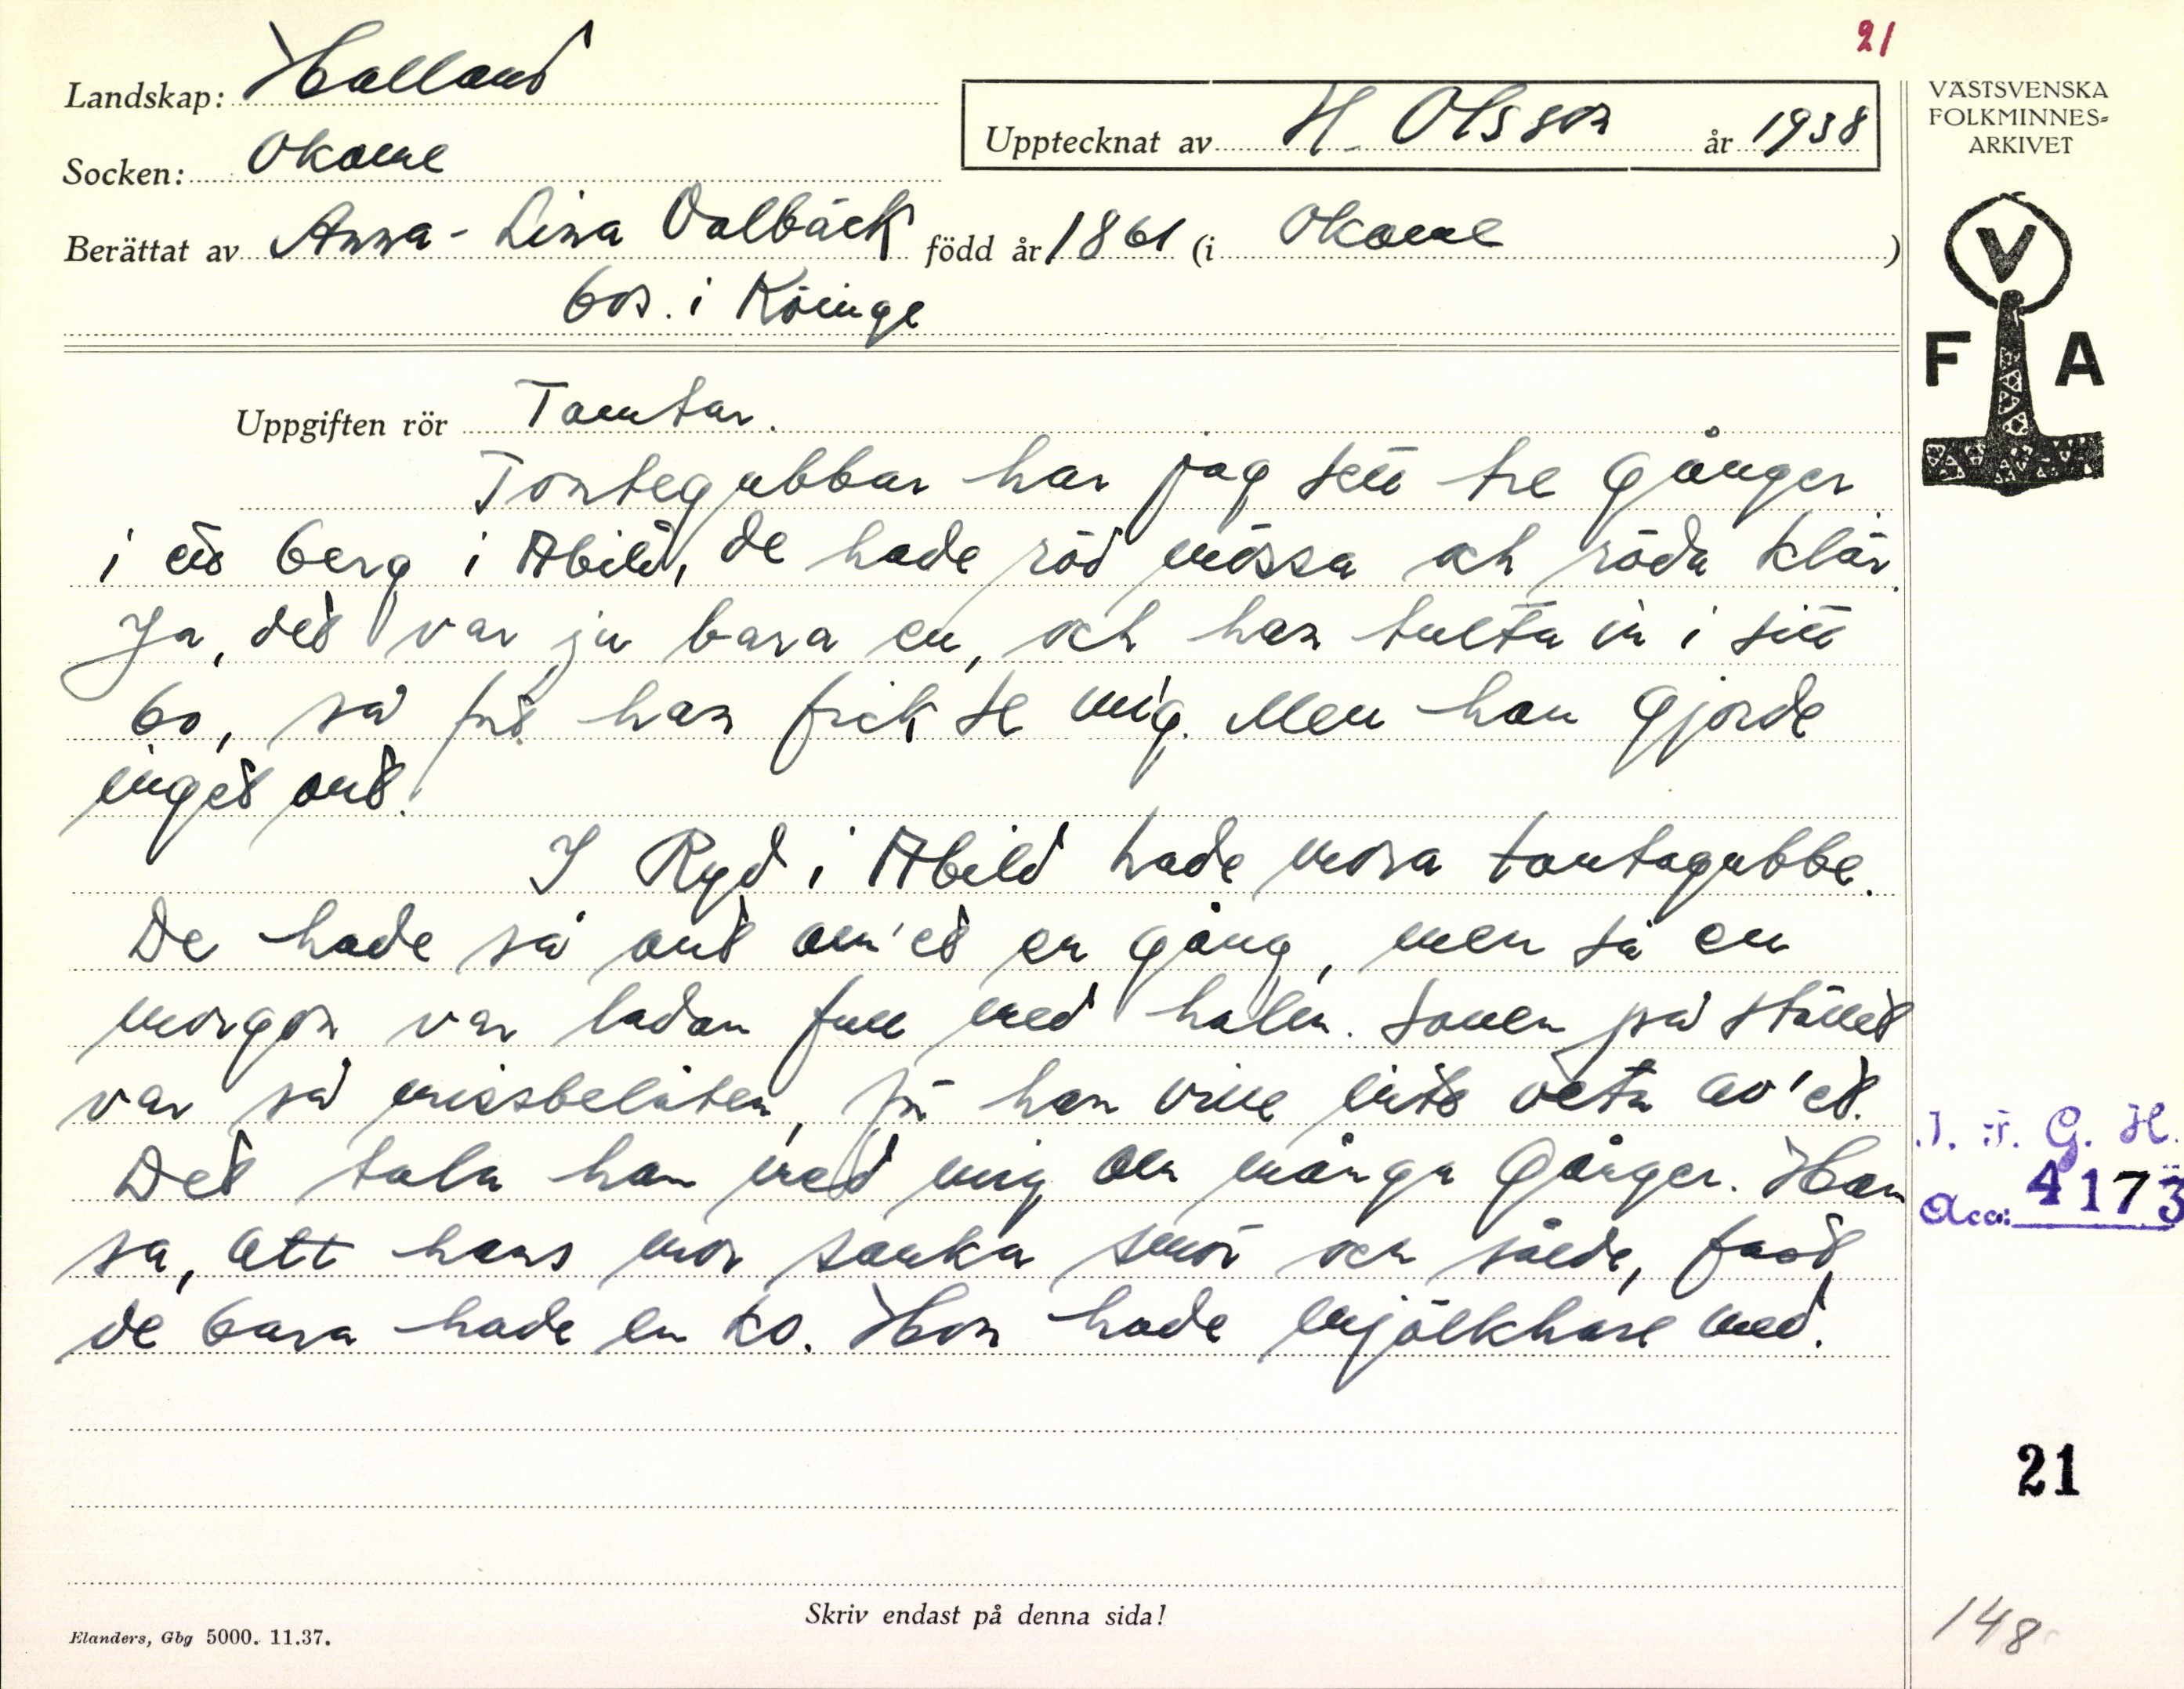 21
Landskap: Halland
Upptecknat av H. Olsson år 1938
Socken: Okome
Berättat av Anna-Lina Valbäck född år 1861 (i Okome)
bos. i Köinge
VÄSTSVENSKA
FOLKMINNES-
ARKIVET
V
F A
Uppgiften rör Tomtar.
Tomtegubbar har jag sett tre gånger
i ett berg i Abild, de hade röd mössa och röda klär.
Ja, det var ju bara en, och han tulta in i sitt
bo, så fort han fick se mig. Men han gjorde
inget ont.
I Ryd i Abild hade mora tomtagubbe.
De hade så ont om'et en gång, men så en
morgon var ladan full med halm. Sonen på stället
var så missbelåten, för han ville inte veta av'et.
Det tala han med mig om många gånger. Han
sa, att hans mor sanka smör och sålde, fast
de bara hade en ko. Hon hade mjölkhare med.
I. F. G. H.
Acc: 4173
21
Skriv endast på denna sida!
Elanders, Gbg 5000. 11.37.
148